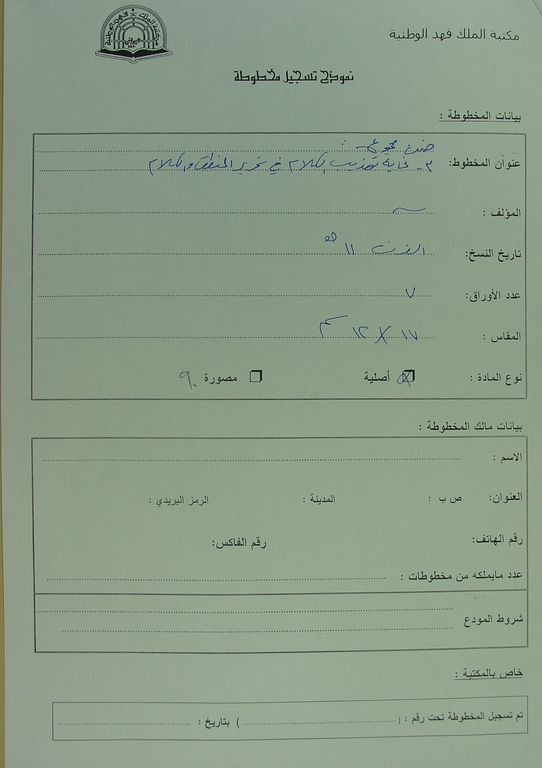 مكتبة الملك فهد الوطنية
نموذج تسجيل مخطوطة
بيانات المخطوطة :
ضمن مجموع :
عنوان المخطوط: ٣- غاية تهذيب الكلام في تحرير المنطق والكلام
المؤلف :
تاريخ النسخ: القرن ١١ هـ
عدد الأوراق: ٧
المقاس : ١٧ × ١٢ سم
نوع المادة : أصلية مصورة ٩٠
بيانات مالك المخطوطة :
الاسم :
العنوان: ص ب : المدينة : الرمز البريدي :
رقم الهاتف: رقم الفاكس:
عدد مايملكه من مخطوطات :
شروط المودع
خاص بالمكتبة :
تم تسجيل المخطوطة تحت رقم : ( ) بتاريخ :